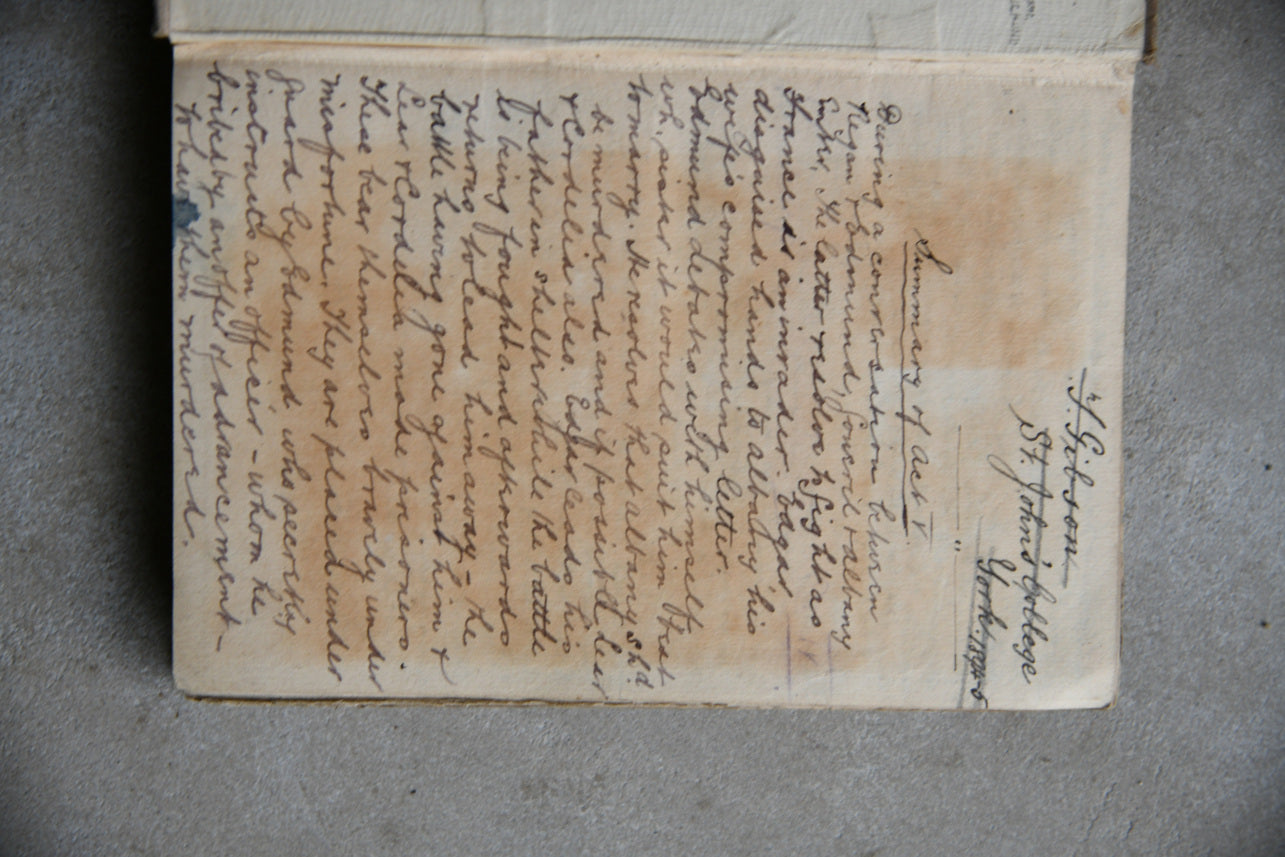 T. Gibson
St. John's College
York. 1894-5
"
Summary of Act V.
During a conversation between
Regan & Edmund, Goneril & Albany
Enter, the latter resolve to fight as
France is an invader. Edgar
disguised hands to Albany his
wife's compromising letter.
Edmund debates with himself
wh. sister it would suit him best
to marry. He resolves that Albany shd
be murdered and if possible Lear
& Cordelia also. Edgr leads his
father in shelter while the battle
is being fought and afterwards
returns to lead him away - the
battle having gone against him &
Lear & Cordelia made prisoners.
These bear themselves bravely under
misfortune. They are placed under
guard by Edmund who secretly
instructs an officer - whom he
bribed by an offer of advancement -
to have them murdered.